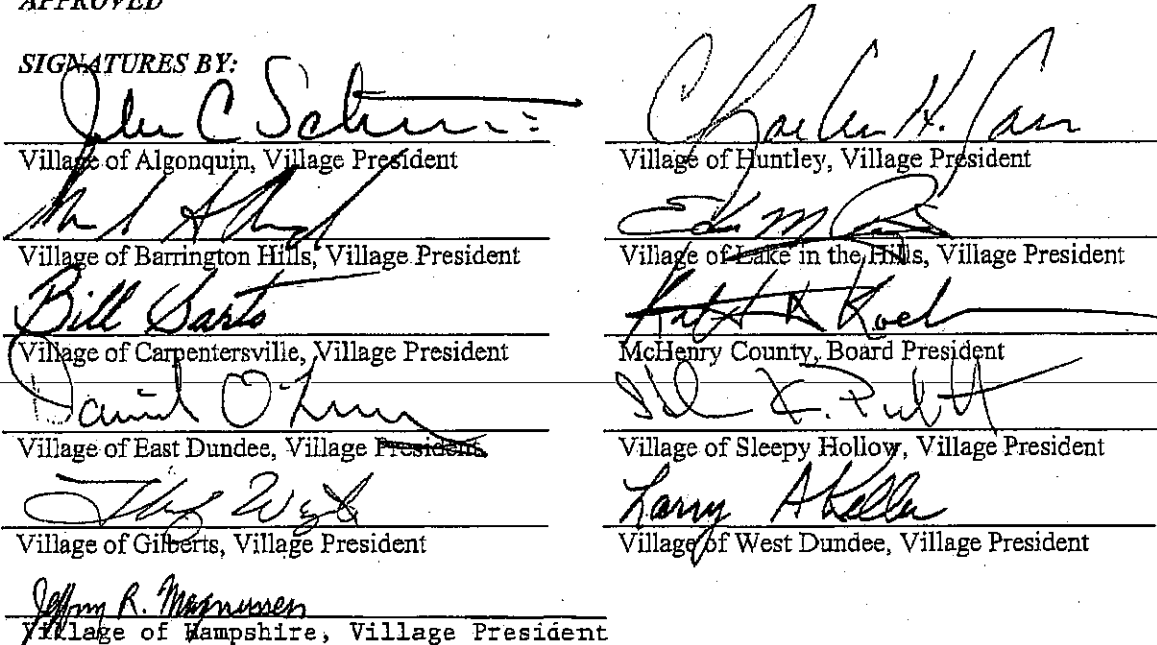 APPROVED
SIGNATURES BY:
John C Schm
Village of Algonquin, Village President
Village of Barrington Hills, Village President
Bill Sarto
Village of Carpentersville, Village President
David O'
Village of East Dundee, Village President
Village of Gilberts, Village President
Jeffrey R. Magnussen
Village of Hampshire, Village President
Charlen H. Carr
Village of Huntley, Village President
Village of Lake in the Hills, Village President
Koeh
McHenry County, Board President
Village of Sleepy Hollow, Village President
Larry A Keller
Village of West Dundee, Village President